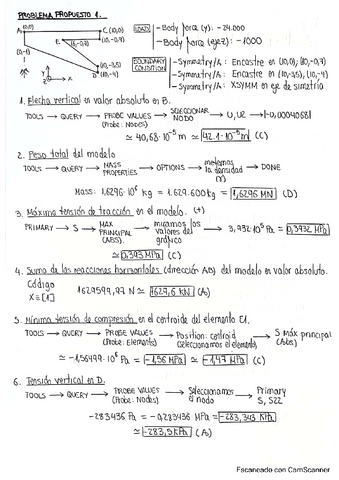 PROBLEMA PROPUESTO 1.
A (0,0)
C (10,0)
E (5,-0,7)
(10,-0,7)
(0,-1)
B
(10,-3,5)
D (10,-4)
LOAD
- Body force (y): -24.000
- Body force (eje z): -1000
BOUNDARY CONDITION
- Symmetry/A: Encastre en (10,0), (10,-0,7)
- Symmetry/A: Encastre en (10,-3,5), (10,-4)
- Symmetry/A: XSYMM en eje de simetría
1. Flecha vertical en valor absoluto en B.
TOOLS → QUERY → PROBE VALUES (Probe: Nodes) → SELECCIONAR NODO → U, U2 → -0,00040681
≃ 40,68·10⁻⁵ m ≃ 42.1·10⁻⁵ m (C)
2. Peso total del modelo
TOOLS → QUERY → MASS PROPERTIES → OPTIONS → metemos la densidad → DONE
Mass: 1,6296·10⁶ kg = 1.629.600 kg = 1,6296 MN (D)
3. Máxima tensión de tracción en el modelo. (+)
PRIMARY → S → MAX PRINCIPAL (ABS). → miramos los valores del gráfico → 3,932·10⁵ Pa = 0,3932 MPa
≃ 0,393 MPa (C)
4. Suma de las reacciones horizontales (dirección AC) del modelo en valor absoluto.
Código
X = [1]
1629599,97 N ≃ 1629,6 KN (A)
5. Mínima tensión de compresión en el centroide del elemento E1.
TOOLS → QUERY → PROBE VALUES (Probe: Elements) → Position: centroid (seleccionamos el elemento) → S máx principal (Abs)
≃ -1,56499·10⁶ Pa = -1,56 MPa ≃ -1,47 MPa (C)
6. Tensión vertical en D.
TOOLS → QUERY → PROBE VALUES (Probe: Nodes) → Seleccionamos el nodo → Primary S, S22
-283436 Pa = -0,283436 MPa = -283,343 KPa
≃ -283,5 KPa (A)
Escaneado con CamScanner